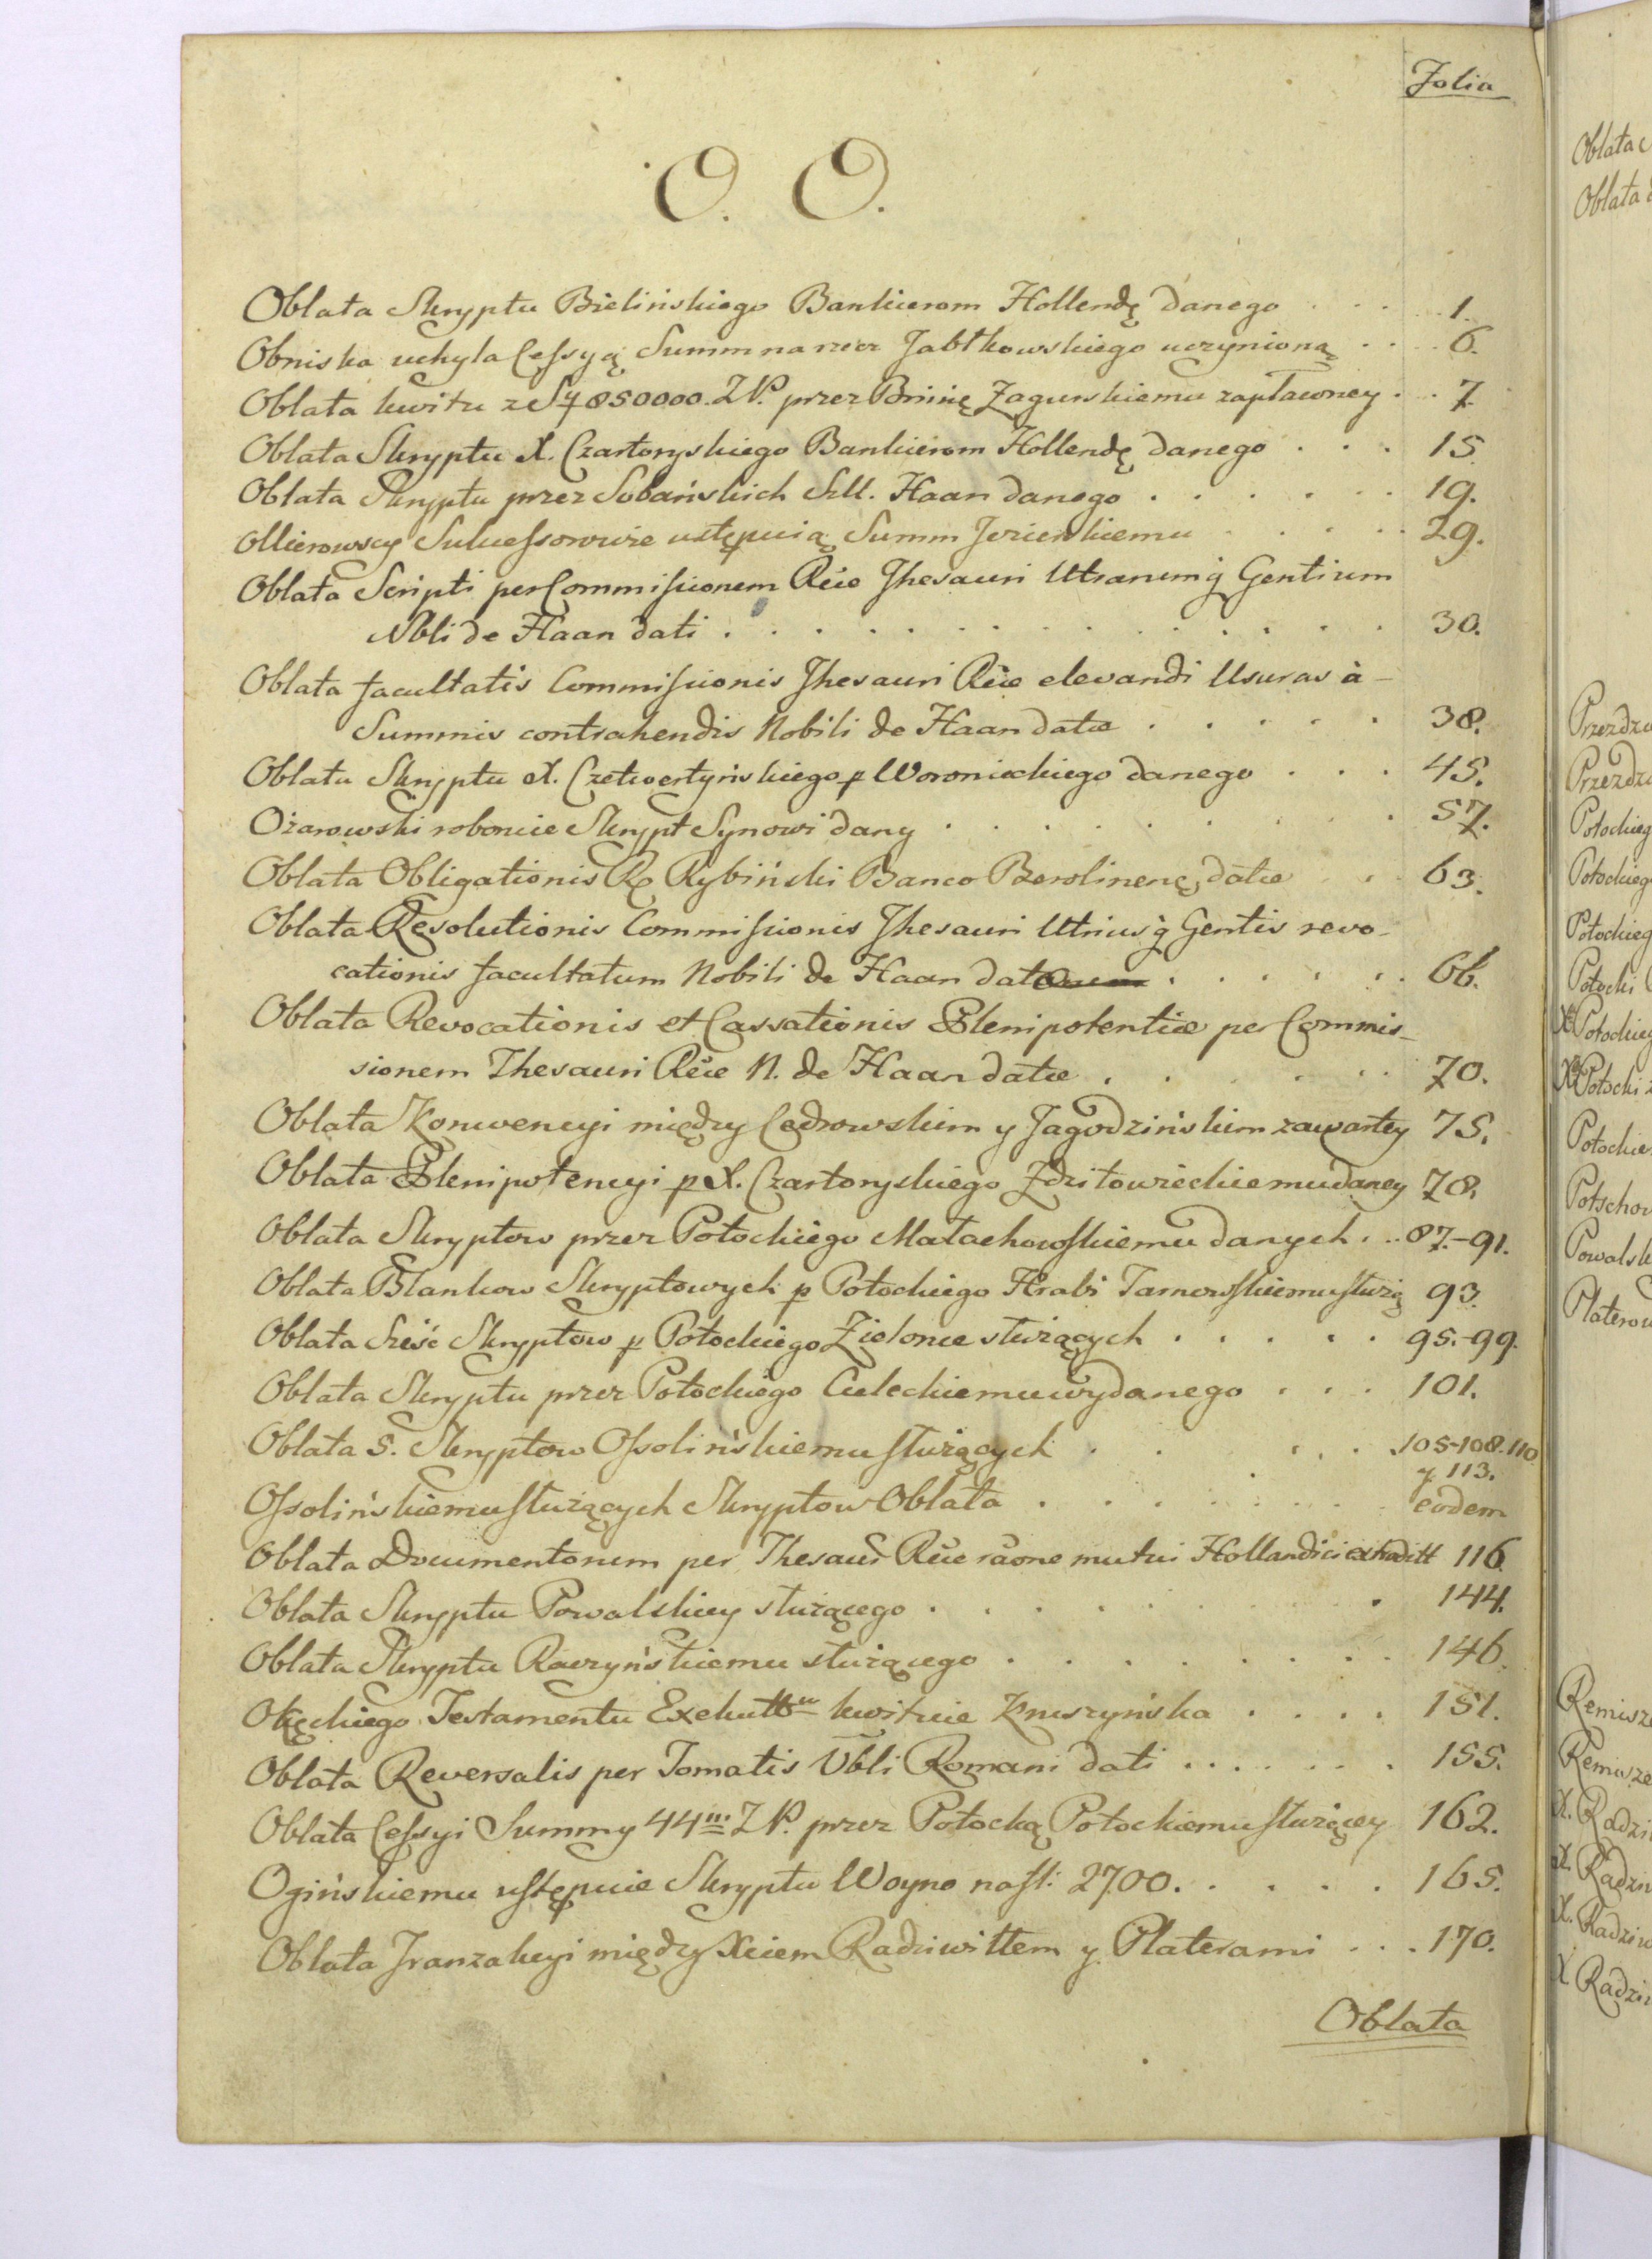 Folia
O. O.
Oblata Skryptu Bielińskiego Bankierom Hollendę danego . . . 1.
Obniska uchyla Cessyą Summ na rzecz Jabłkowskiego uczynioną . . . 6.
Oblata kwitu z 850000. ZP. przez Zagurskiemu zapłaconey . . 7.
Oblata Skryptu X. Czartoryskiego Bankierom Hollendę danego . . . 15.
Oblata Skryptu przez Sobańskich Szl. Haan danego . . . . . . 19.
Ollierowscy Sukcessorowie ustępuią Summ Jezierskiemu . . . . . 29.
Oblata Scripti per Commissionem Rčæ Thesauri Utranumq̷ Gentium
Nbli de Haan dati . . . . . . . . . . . . . . 30.
Oblata facultatis Commissionis Thesauri Rčæ elevandi Usuras à
Summis contrahendis Nobili de Haan datæ . . . . . 38.
Oblata Skryptu X. Czetwertyńskiego p Woronieckiego danego . . . 45.
Ożarowski roboruie Skrypt Synowi dany . . . . . . . . 57.
Oblata Obligationis Rybiński Banco Berolinenę datæ . . 63.
Oblata Resolutionis Commissionis Thesauri Utriusq̷ Gentis revo-
cationis facultatum Nobili de Haan dat . . . . . . 66.
Oblata Revocationis et Cassationis Plenipotentiæ per Commis-
sionem Thesauri Rčæ N. de Haan datæ . . . . . . 70.
Oblata Konwencyi między Cedrowskim y Jagodzińskim zawartey 75.
Oblata Plenipotencyi p X. Czartoryskiego Zdzitowieckiemu daney 78.
Oblata Skryptow przez Potockiego Małachowskiemu danych . .. 87.-91.
Oblata Blankow Skryptowych p Potockiego Hrabi Tarnowskiemu służą 93.
Oblata Sześć Skryptow p Potockiego Zielonce służących . . . . . 95.-99.
Oblata Skryptu przez Potockiego Cieleckiemu wydanego . . . 101.
Oblata 5. Skryptow Ossolińskiemu służących . . . . . 105-108.110.
y. 113.
Ossolińskiemu służących Skryptow Oblata . . . . . . . eodem
Oblata Documentorum per Thesaur Rčæ raõne mutui Hollandici extraditt 116.
Oblata Skryptu Powalskiey służącego . . . . . . . . 144.
Oblata Skryptu Raczyńskiemu służącego . . . . . . . . 146.
Okęckiego Testamentu Exekutt kwituie Kruszyńska . . . . 151.
Oblata Reversalis per Tomatis Ubli Romani dati . . . . . . 155.
Oblata Cessyi Summy 44m. ZP. przez Potocką Potockiemu służącey 162.
Ogińskiemu ustępuie Skryptu Woyno na 2700. . . . . . 165.
Oblata Tranzakcyi między Xciem Radziwiłłem y Platerami . . . 170.
Oblata
Oblata
Oblata
Potockieg
Potockieg
Potockieg
Potocki
Potockieg
Potocki
Potockie
Platerow
X. Radziw
X Radzi